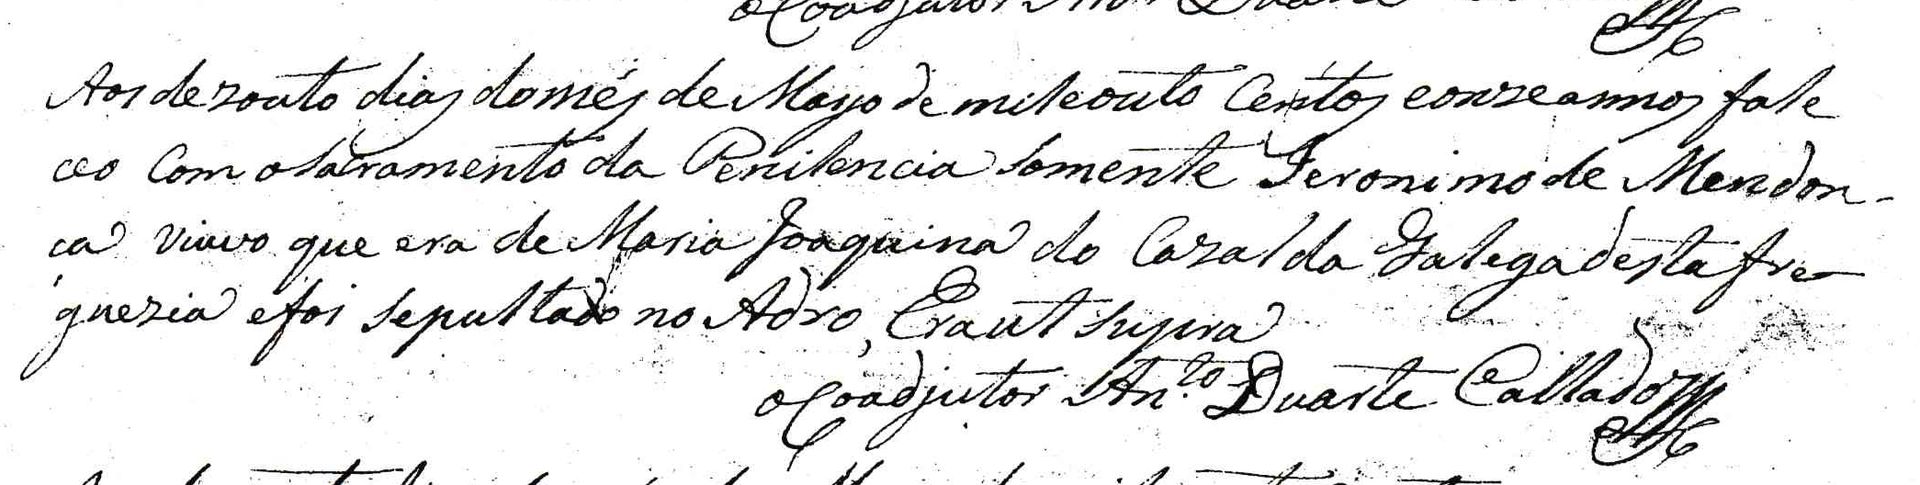 o Coadjutor An.to Duarte
Aos dezouto dias do mês de Mayo de mil e outo Centos e onze annos fale
ceo Com o Sacramento da Penitencia Somente Jeronimo de Mendon-
ca viuvo que era de Maria Joaquina do Cazal da Galega desta fre-
guezia e foi sepultado no Adro, Era ut supra
o Coadjutor An.to Duarte Callado